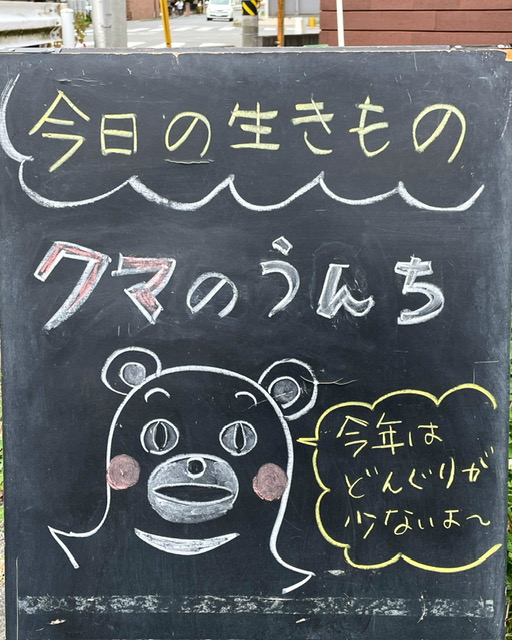 今日の生きもの
クマのうんち
今年は
どんぐりが
少ないよ〜